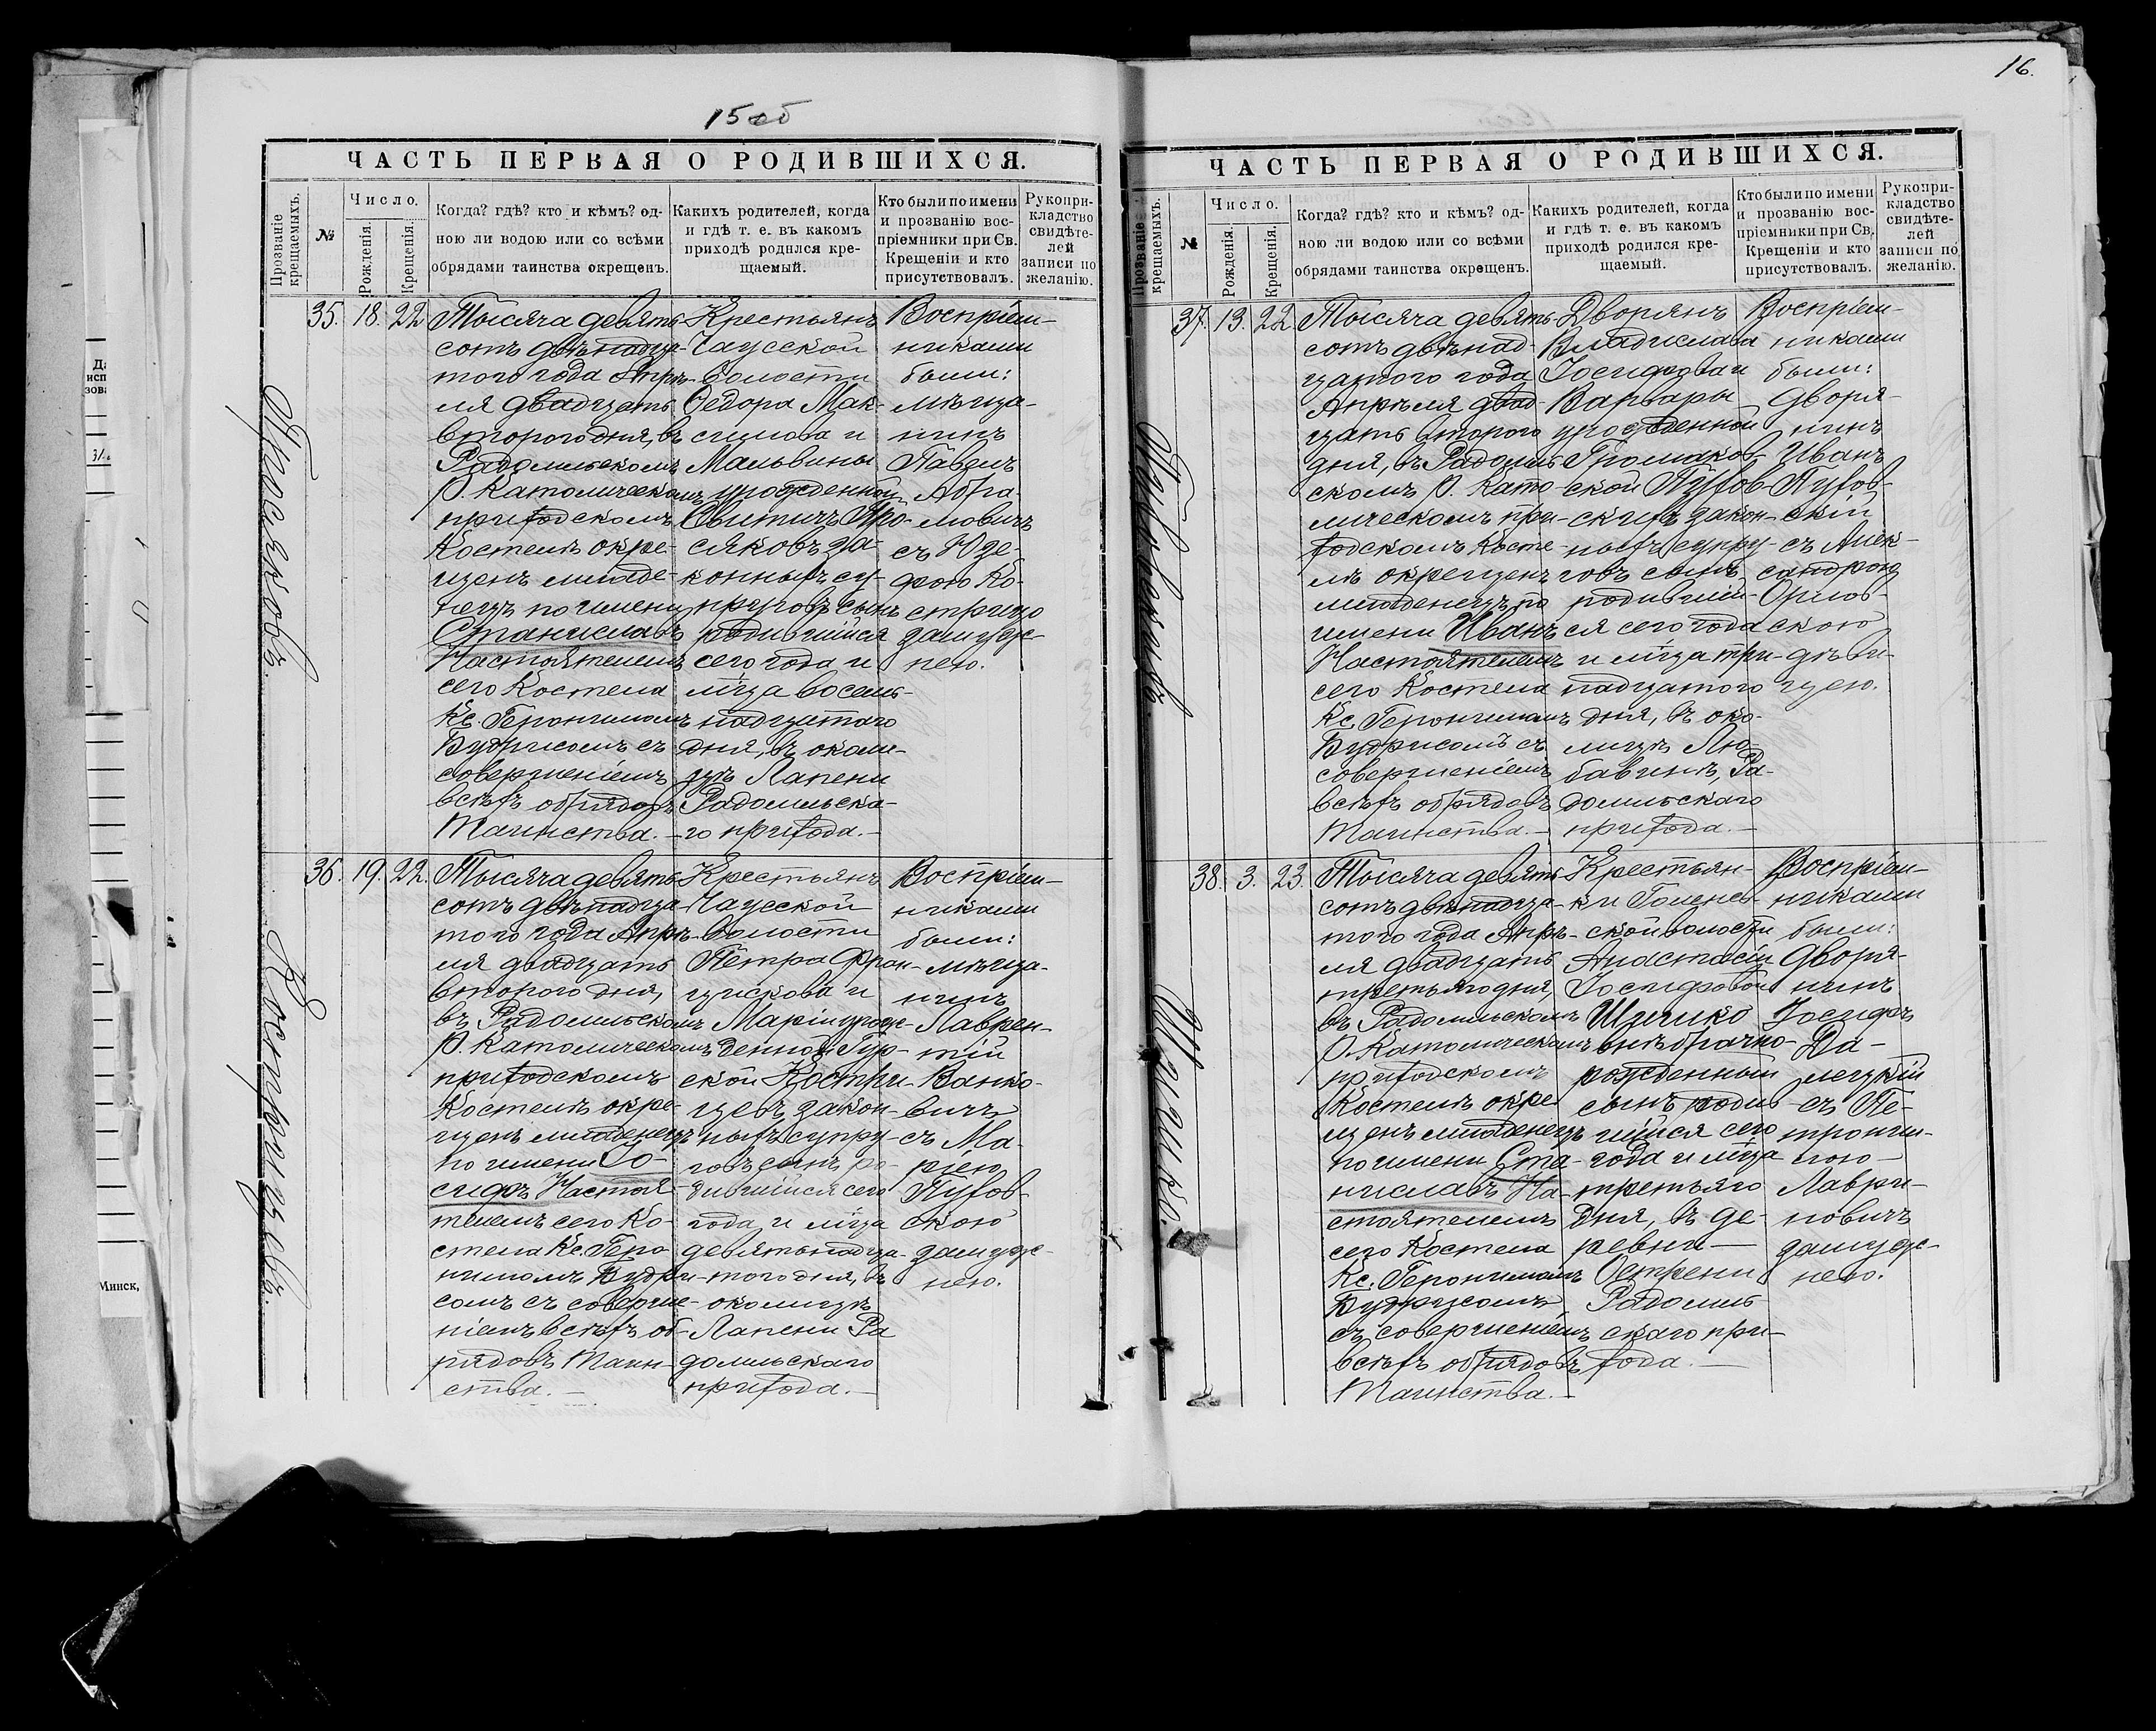 15об
ЧАСТЬ ПЕРВАЯ О РОДИВШИХСЯ.
Прозваніе крещаемыхъ.
№
Число.
Рожденія.
Крещенія.
Когда? гдѣ? кто и кѣмъ? од-
ною ли водою или со всѣми
обрядами таинства окрещенъ.
Какихъ родителей, когда
и гдѣ т. е. въ какомъ
приходѣ родился кре-
щаемый.
Кто были по имени
и прозванію вос-
пріемники при Св.
Крещеніи и кто
присутствовалъ.
Рукопри-
кладство
свидѣте-
лей
записи по
желанію.
35.
18.
22
Тысяча девять-
сотъ двѣнадца-
того года Апрѣ-
ля двадцать
второго дня, въ
Радомльскомъ
Р. Католическомъ
приходскомъ
Костелѣ окре-
щенъ младе-
нецъ по имени
Станиславъ
Настоятелемъ
сего Костела
Кс. Геронимомъ
Будрисомъ съ
совершеніемъ
всѣхъ обрядовъ
Таинства. –
Крестьянъ
Чаусской
волости
Ѳедора Мак-
симова и
Мальвины
урожденной
Свитичъ
сяковъ за-
конныхъ су-
пруговъ сынъ
родившійся
сего года и
м҃ца восем-
надцатаго
дня, въ околи-
цѣ Лапени
Радомльска-
го прихода. –
Воспріем-
никами
были:
мѣща-
нинъ
Павелъ
Абра-
мовичъ
съ Юзе-
фою Ко-
стрицо
замуж-
нею.
36.
19.
22.
Костричевъ.
Тысяча девять-
сотъ двѣнадца-
того года Апрѣ-
ля двадцать
второго дня,
въ Радомльскомъ
Р. Католическомъ
приходскомъ
Костелѣ окре-
щенъ младенецъ
по имени Іо-
сифъ Настоя-
телемъ сего Ко-
стела Кс. Геро-
нимомъ Будри-
сомъ съ соверше-
ніемъ всѣхъ об-
рядовъ Таин-
ства. –
Крестьянъ
Чаусской
волости
Петра Фран-
цискова и
Маріи урож-
денной Гур-
ской Костри-
цевъ закон-
ныхъ супру-
говъ сынъ ро-
дившійся сего
года и м҃ца
девятнадца-
того дня, въ
околицѣ
Лапени Ра
домльскаго
прихода. –
Воспріем-
никами
были:
мѣща-
нинъ
Лаврен-
тій
Ванко-
вичъ
съ Ма-
ріею
Пухов-
скою
замуж-
нею.
16.
ЧАСТЬ ПЕРВАЯ О РОДИВШИХСЯ.
Прозваніе крещаемыхъ.
№
Число.
Рожденія.
Крещенія.
Когда? гдѣ? кто и кѣмъ? од-
ною ли водою или со всѣми
обрядами таинства окрещенъ.
Какихъ родителей, когда
и гдѣ т. е. въ какомъ
приходѣ родился кре-
щаемый.
Кто были по имени
и прозванію вос-
пріемники при Св.
Крещеніи и кто
присутствовалъ.
Рукопри-
кладство
свидѣте-
лей
записи по
желанію.
37.
13.
22
Пуховскихъ.
Тысяча девять-
сотъ двѣнад-
цатого года
Апрѣля двад-
цать второго
дня, въ Радомль-
скомъ Р. Като-
лическомъ при-
ходскомъ Косте-
лѣ окрещенъ
младенецъ по
имени Иванъ
Настоятелемъ
сего Костела
Кс. Геронимомъ
Будрисомъ съ
совершеніемъ
всѣхъ обрядовъ
Таинства. –
Дворянъ
Владислава
Іосифова и
Варвары
урожденной
Громаков-
ской Пухов-
скихъ закон-
ныхъ супру-
говъ сынъ
родившій-
ся сего года
и м҃ца три-
надцатого
дня, въ око-
лицѣ Лю-
бавинѣ, Ра-
домльскаго
прихода. –
Воспріем-
никами
были:
Дворя-
нинъ
Иванъ
Пухов-
скій
съ Алек-
сандрою
Орлов-
скою
дѣви-
цею.
38.
3.
23.
Шпилько.
Тысяча девять-
сотъ двѣнадца-
того года Апрѣ-
ля двадцать
третьяго дня,
въ Радомльскомъ
Р. Католическомъ
приходскомъ
Костелѣ окре
щенъ младенецъ
по имени Ста-
ниславъ На-
стоятелемъ
сего Костела
Кс. Геронимомъ
Будрисомъ
съ совершеніемъ
всѣхъ обрядовъ
Таинства. –
Крестьян-
ки Голенев-
ской волости
Анастасіи
Іосифовой
Шпилько
внѣбрачно-
рожденный
сынъ родив-
шійся сего
года и м҃ца
третьяго
дня, въ де-
ревни –
Острени
Радомль
скаго при-
хода. –
Воспріем-
никами
были:
Дворя-
нинъ
Іосифъ
Да-
лецкій
съ Пе-
трони-
лою
Лаври-
новичъ
замуж-
нею.
Минск,